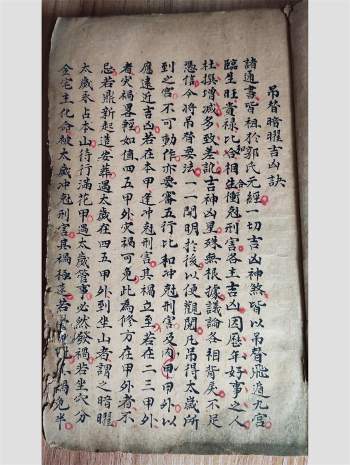 吊替暗曜吉凶訣
諸通書皆祖於郭氏元經一切吉凶神煞皆以吊替飛遁九宮
臨生旺貴祿比和合相生衝尅刑害各主吉凶因歷年好事之人
杜撰增減多致差訛吉神凶星殊無根據議論各相背戾不足
憑信今將吊替要法一一開明於後以便觀閱凡吊得太歲所
到之宮不可動作亦要審五行比和冲尅刑害及內甲甲外以
應遠近吉凶若在本甲逢冲尅刑害其禍立至若在二三甲外
者灾禍畧輕如值四五甲外灾禍可免此為修方在甲外者不
忌若鼎新起造安葬遇太歲在四五甲外到坐山者謂之暗曜
太歲來占本山待行滿花甲遇太歲管事必然發禍若坐穴分
金宅主化命被太歲冲尅刑害其禍極速若禍免半